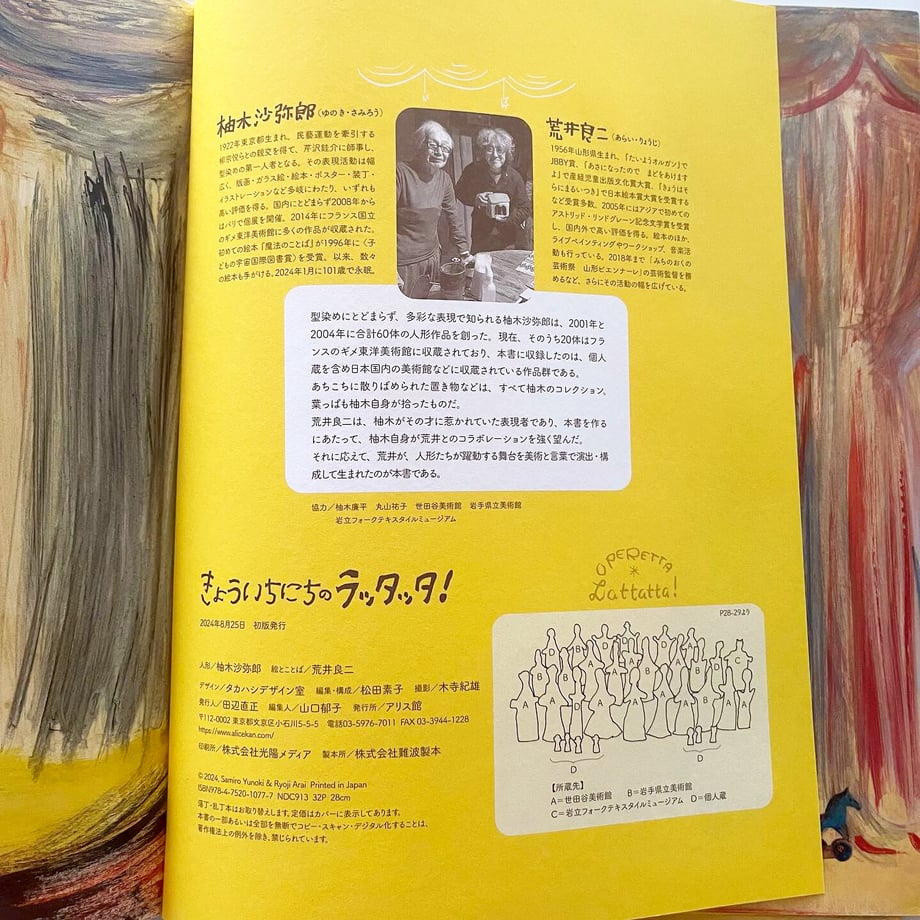 柚木沙弥郎（ゆのき・さみろう）
1922年東京都生まれ。民藝運動を牽引する
柳宗悦らとの親交を得て、芹沢銈介に師事し、
型染めの第一人者となる。その表現活動は幅
広く、版画・ガラス絵・絵本・ポスター・装丁・
イラストレーションなど多岐にわたり、いずれも
高い評価を得る。国内にとどまらず2008年から
はパリで個展を開催。2014年にフランス国立
のギメ東洋美術館に多くの作品が収蔵された。
初めての絵本「魔法のことば」が1996年に〈子
どもの宇宙国際図書賞〉を受賞。以来、数々
の絵本も手がける。2024年1月に101歳で永眠。
荒井良二（あらい・りょうじ）
1956年山形県生まれ。「たいようオルガン」で
JBBY賞、「あさになったので まどをあけます
よ」で産経児童出版文化賞大賞、「きょうはそ
らにまるいつき」で日本絵本賞大賞を受賞する
など受賞多数。2005年にはアジアで初めての
アストリッド・リンドグレーン記念文学賞を受賞
し、国内外で高い評価を得る。絵本のほか、
ライブペインティングやワークショップ、音楽活
動も行っている。2018年まで「みちのおくの
芸術祭 山形ビエンナーレ」の芸術監督を務
めるなど、さらにその活動の幅を広げている。
型染めにとどまらず、多彩な表現で知られる柚木沙弥郎は、2001年と
2004年に合計60体の人形作品を創った。現在、そのうち20体はフラ
ンスのギメ東洋美術館に収蔵されており、本書に収録したのは、個人
蔵を含め日本国内の美術館などに収蔵されている作品群である。
あちこちに散りばめられた置き物などは、すべて柚木のコレクション。
葉っぱも柚木自身が拾ったものだ。
荒井良二は、柚木がその才に惹かれていた表現者であり、本書を作る
にあたって、柚木自身が荒井とのコラボレーションを強く望んだ。
それに応えて、荒井が、人形たちが躍動する舞台を美術と言葉で演出・構
成して生まれたのが本書である。
協力／柚木廉平 丸山祐子 世田谷美術館 岩手県立美術館
岩立フォークテキスタイルミュージアム
きょういちにちのラッタッタ！
2024年8月25日 初版発行
人形／柚木沙弥郎 絵とことば／荒井良二
デザイン／タカハシデザイン室 編集・構成／松田素子 撮影／木寺紀雄
発行人／田辺直正 編集人／山口郁子 発行所／アリス館
〒112-0002 東京都文京区小石川5-5-5 電話03-5976-7011 FAX 03-3944-1228
https://www.alicekan.com/
印刷所／株式会社光陽メディア 製本所／株式会社難波製本
©2024, Samiro Yunoki & Ryoji Arai Printed in Japan
ISBN978-4-7520-1077-7 NDC913 32P 28cm
落丁・乱丁本はお取り替えします。定価はカバーに表示してあります。
本書の一部あるいは全部を無断でコピー・スキャン・デジタル化することは、
著作権法上の例外を除き、禁じられています。
OPERETTA
＊
Lattatta!
P28-29より
D B D D A D B C
A A A A A A
A B A B A B A B A A
D D
【所蔵先】
A＝世田谷美術館 B＝岩手県立美術館
C＝岩立フォークテキスタイルミュージアム D＝個人蔵